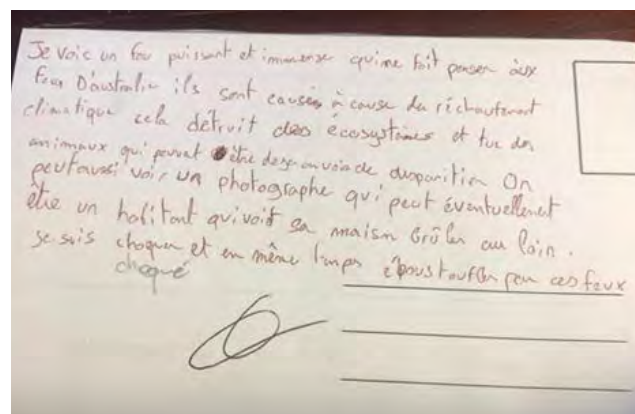 Je vois un feu puissant et immense qui me fait penser aux
feux D'australie ils sont causés à cause du réchaufement
climatique cela détruit des écosystèmes et tue des
animaux qui peuvent être déjà en voie de disparition On
peut aussi voir un photographe qui peut éventuellement
être un habitant qui voit sa maison brûler au loin.
je suis choquer et en même temps époustoufler par ces feux
choqué